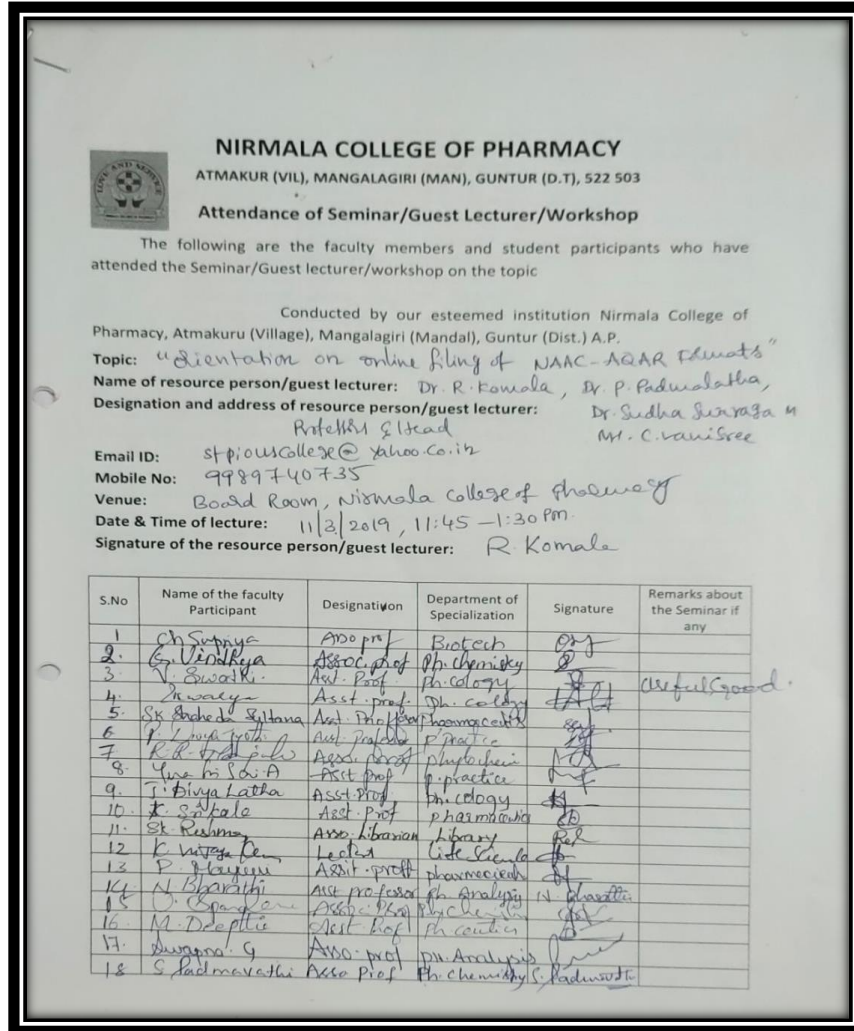 NIRMALA COLLEGE OF PHARMACY
LOVE AND SERVICE
ATMAKUR (VIL), MANGALAGIRI (MAN), GUNTUR (D.T), 522 503
Attendance of Seminar/Guest Lecturer/Workshop
The following are the faculty members and student participants who have
attended the Seminar/Guest lecturer/workshop on the topic
Conducted by our esteemed institution Nirmala College of
Pharmacy, Atmakuru (Village), Mangalagiri (Mandal), Guntur (Dist.) A.P.
Topic: "Orientation on online filing of NAAC-AQAR Formats"
Name of resource person/guest lecturer: Dr. R. Komala, Dr. P. Padmalatha,
Designation and address of resource person/guest lecturer: Dr. Sudha M
Professor & Head C. Vanisree
Email ID: stpiouscollege@yahoo.co.in
Mobile No: 9989740735
Venue: Board Room, Nirmala college of Pharmacy
Date & Time of lecture: 11/3/2019, 11:45 - 1:30 Pm.
Signature of the resource person/guest lecturer: R. Komala
S.No Name of the faculty Participant Designation Department of Specialization Signature Remarks about the Seminar if any
1 Ch Supriya prof Biotech
2. G. Vindhya Assoc. prof Ph. chemistry
3 V. Swathi Asst. Prof Ph.cology
4. Asst. prof. Ph. cology Useful & good.
5. SK Shaheda Sultana Asst. Professor Pharmaceutics
6 Asst P Practice
7 prof phytochem
8. Sai. A Asst prof p. practice
9. T. Divya Latha Asst. Prof ph. cology
10. K. Srikala Asst. Prof pharmaceutics
11. Sk. Reshma Asso. Librarian Library
12 K Life
13 P. Assit. proff
14 N. Bharathi Asst professor Ph. Analysis N. Bharathi
15
16 M. Deepthi Asst Prof Ph ceutics
17. Swapna. G Asso. prof ph. Analysis
18 S Padmavathi Asso Prof Ph. Chemistry S. Padmavathi